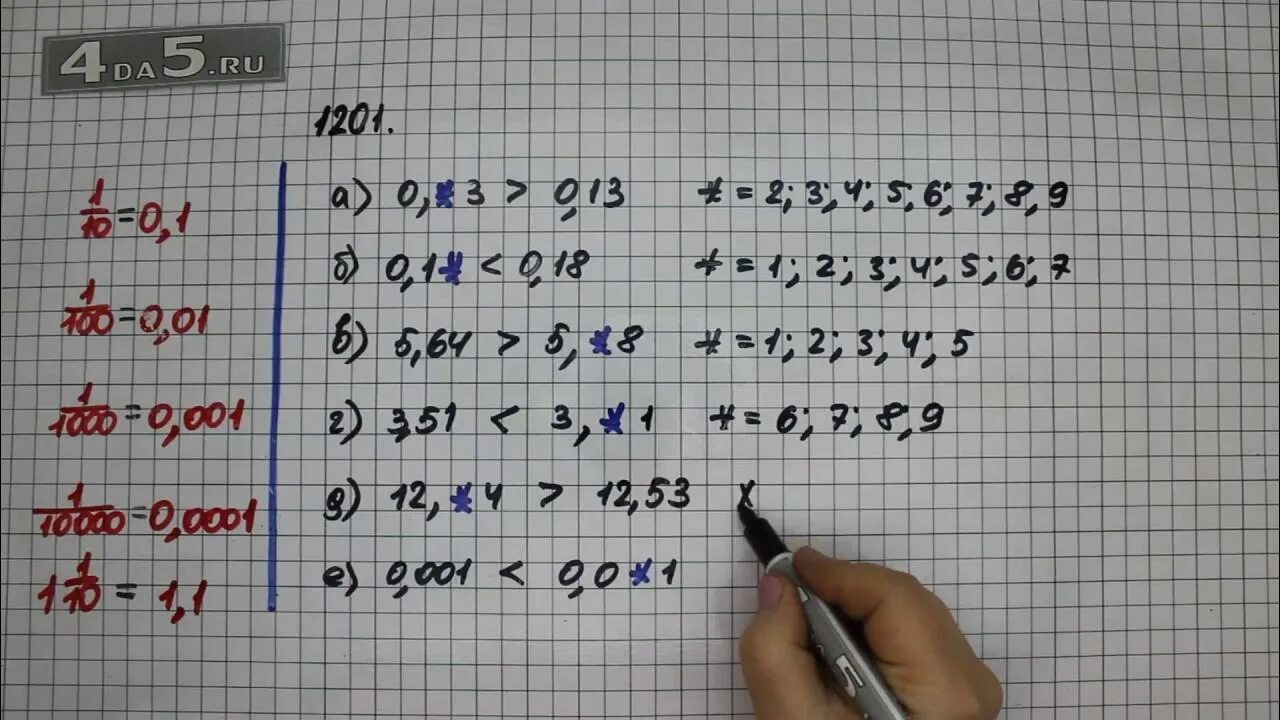 4DA5.RU
1201.
1/10 = 0,1
1/100 = 0,01
1/1000 = 0,001
1/10000 = 0,0001
1 1/10 = 1,1
а) 0,*3 > 0,13 * = 2; 3; 4; 5; 6; 7; 8, 9
б) 0,1* < 0,18 * = 1; 2; 3; 4; 5; 6; 7
в) 5,64 > 5,*8 * = 1; 2; 3; 4; 5
г) 3,51 < 3,*1 * = 6; 7; 8, 9
д) 12,*4 > 12,53 x
е) 0,001 < 0,0*1
5